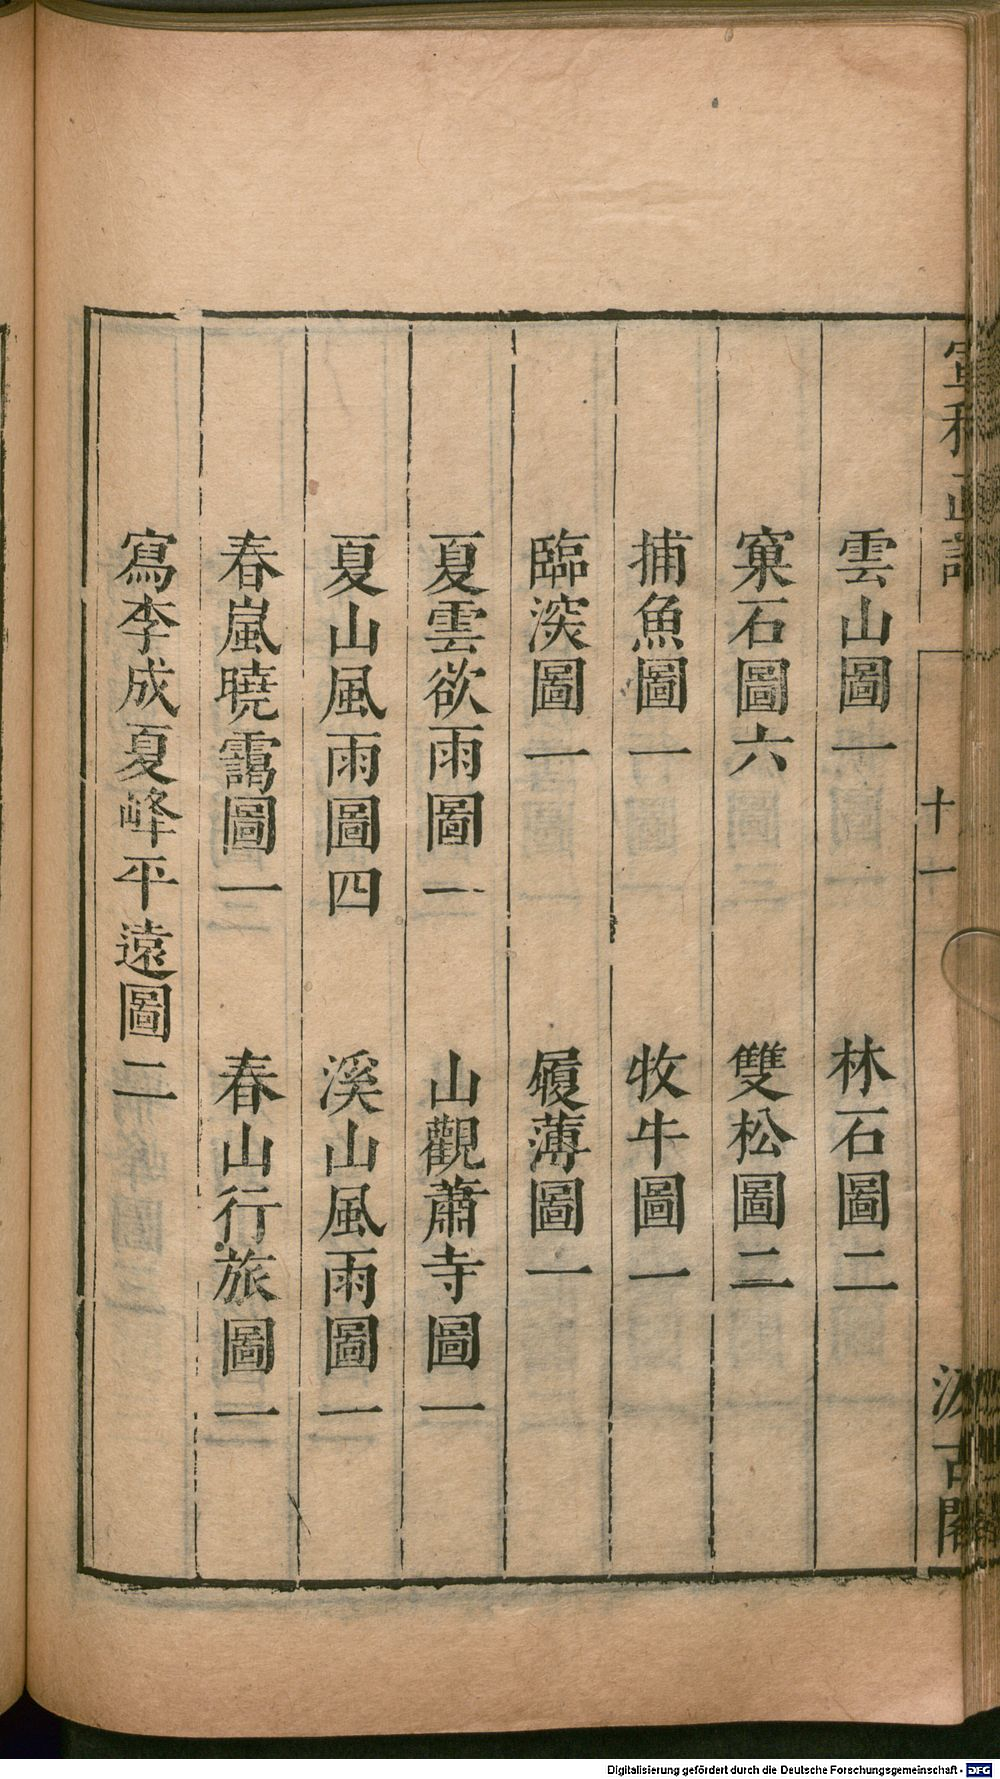 宣和畫譜
十一
汲古閣
雲山圖一 林石圖二
窠石圖六 雙松圖二
捕魚圖一 牧牛圖一
臨深圖一 履薄圖一
夏雲欲雨圖一 山觀蕭寺圖一
夏山風雨圖四 溪山風雨圖一
春嵐曉靄圖一 春山行旅圖一
寫李成夏峰平遠圖二
Digitalisierung gefördert durch die Deutsche Forschungsgemeinschaft - DFG